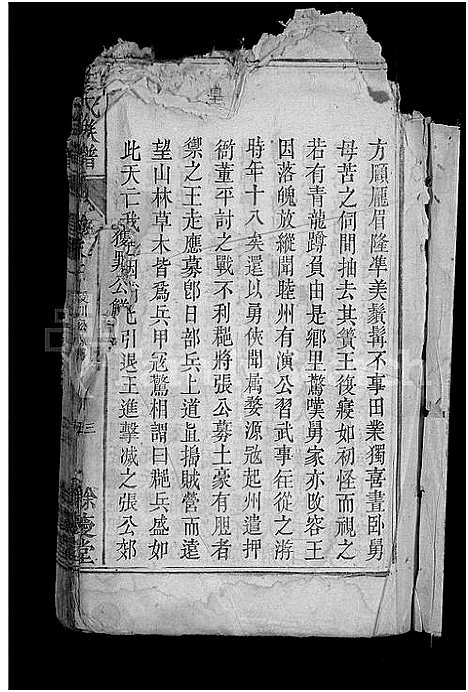 方頤厖眉隆凖美鬚髯不事田業獨喜晝卧舅
母苦之伺間抽去其簀王復寢如初怪而視之
若有青龍蹲負由是鄉里驚嘆舅家亦改容王
因落魄放縱聞睦州有演公習武事徃從之游
時年十八矣還以勇俠聞屬婺源冦起州遣押
衙董平討之戰不利繼將張公募土豪有胆者
禦之王走應募卽日部兵上道直搗賊營而遠
望山林草木皆爲兵甲冦驚相謂曰繼兵盛如
此天亡我
引退王進擊滅之張公郊
氏族譜
公
三
餘慶堂